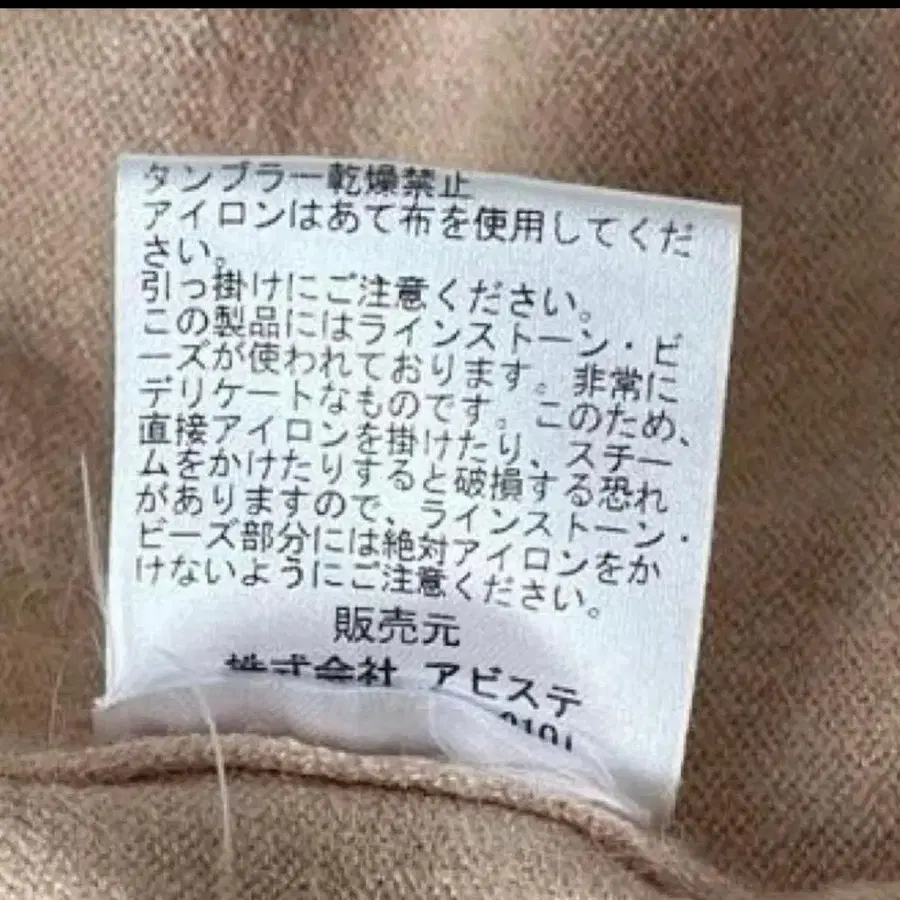 タンブラー乾燥禁止
アイロンはあて布を使用してくだ
さい。
引っ掛けにご注意ください。
この製品にはラインストーン・ビ
ーズが使われております。非常に
デリケートなものです。このため、
直接アイロンを掛けたり、スチー
ムをかけたりすると破損する恐れ
がありますので、ラインストーン・
ビーズ部分には絶対アイロンをか
けないようにご注意ください。
販売元
株式会社 アビステ